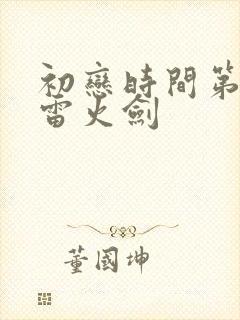 初戀時間第
雷火劍
董國坤